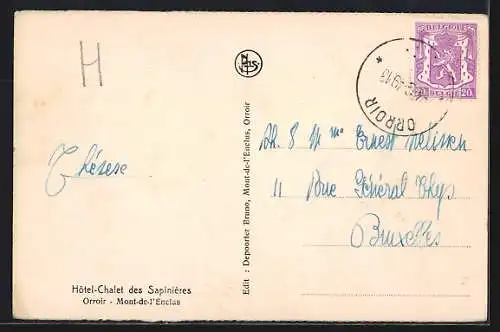 H
Thérèse
Hôtel-Chalet des Sapinières
Orroir - Mont-de-l'Enclus
Edit : Depoorter Bruno, Mont-de-l'Enclus, Orroir
BELGIE
BELGIQUE
20
ORROIR
Mme Ernest
11 Rue Général Thys
Bruxelles